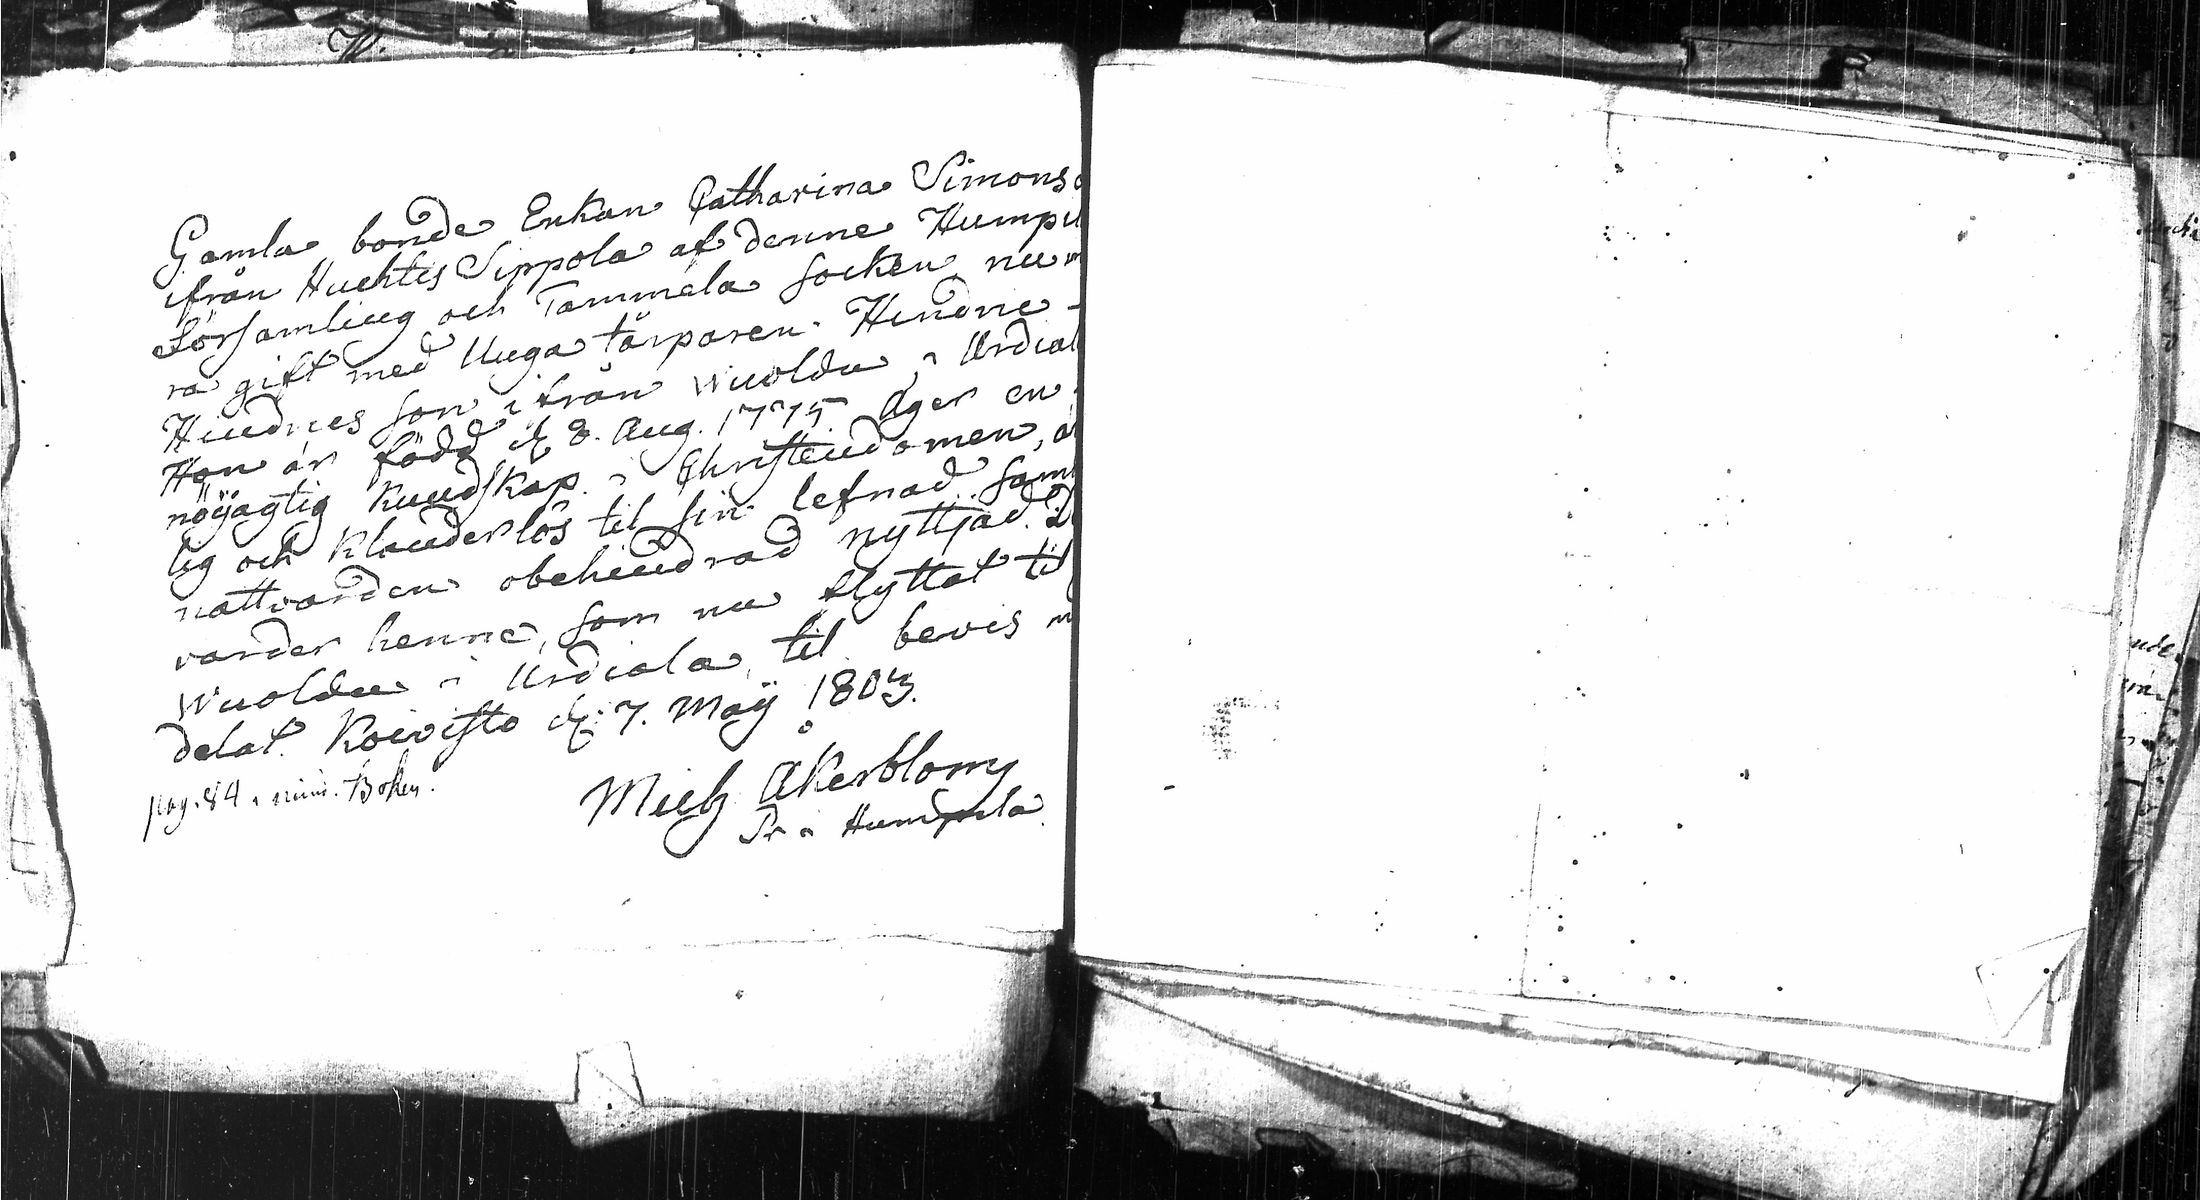 Gamla bonde Enkan Catharina Simons
ifrån Huchtis Sippola af denne Humpil
Församling och Tammela socken, nu
ra gift med Unga tårparen Hindric
Hindrics son ifrån Wuolda i Urdial
Hon är född d. 8. Aug. 1775. Äger en
nöÿagtig kundskap i Christendomen, ä
lig och klanderlös til sin lefnad. sam
nattvarden obehindrad nyttjad. D
varder henne, som nu flyttat til
Wuolda i Urdiala, til bevis
delat. Koivisto d. 7. Maÿ 1803.
Mich Åkerblom
Pr. i Humpila.
pag. 84 i min. Boken.